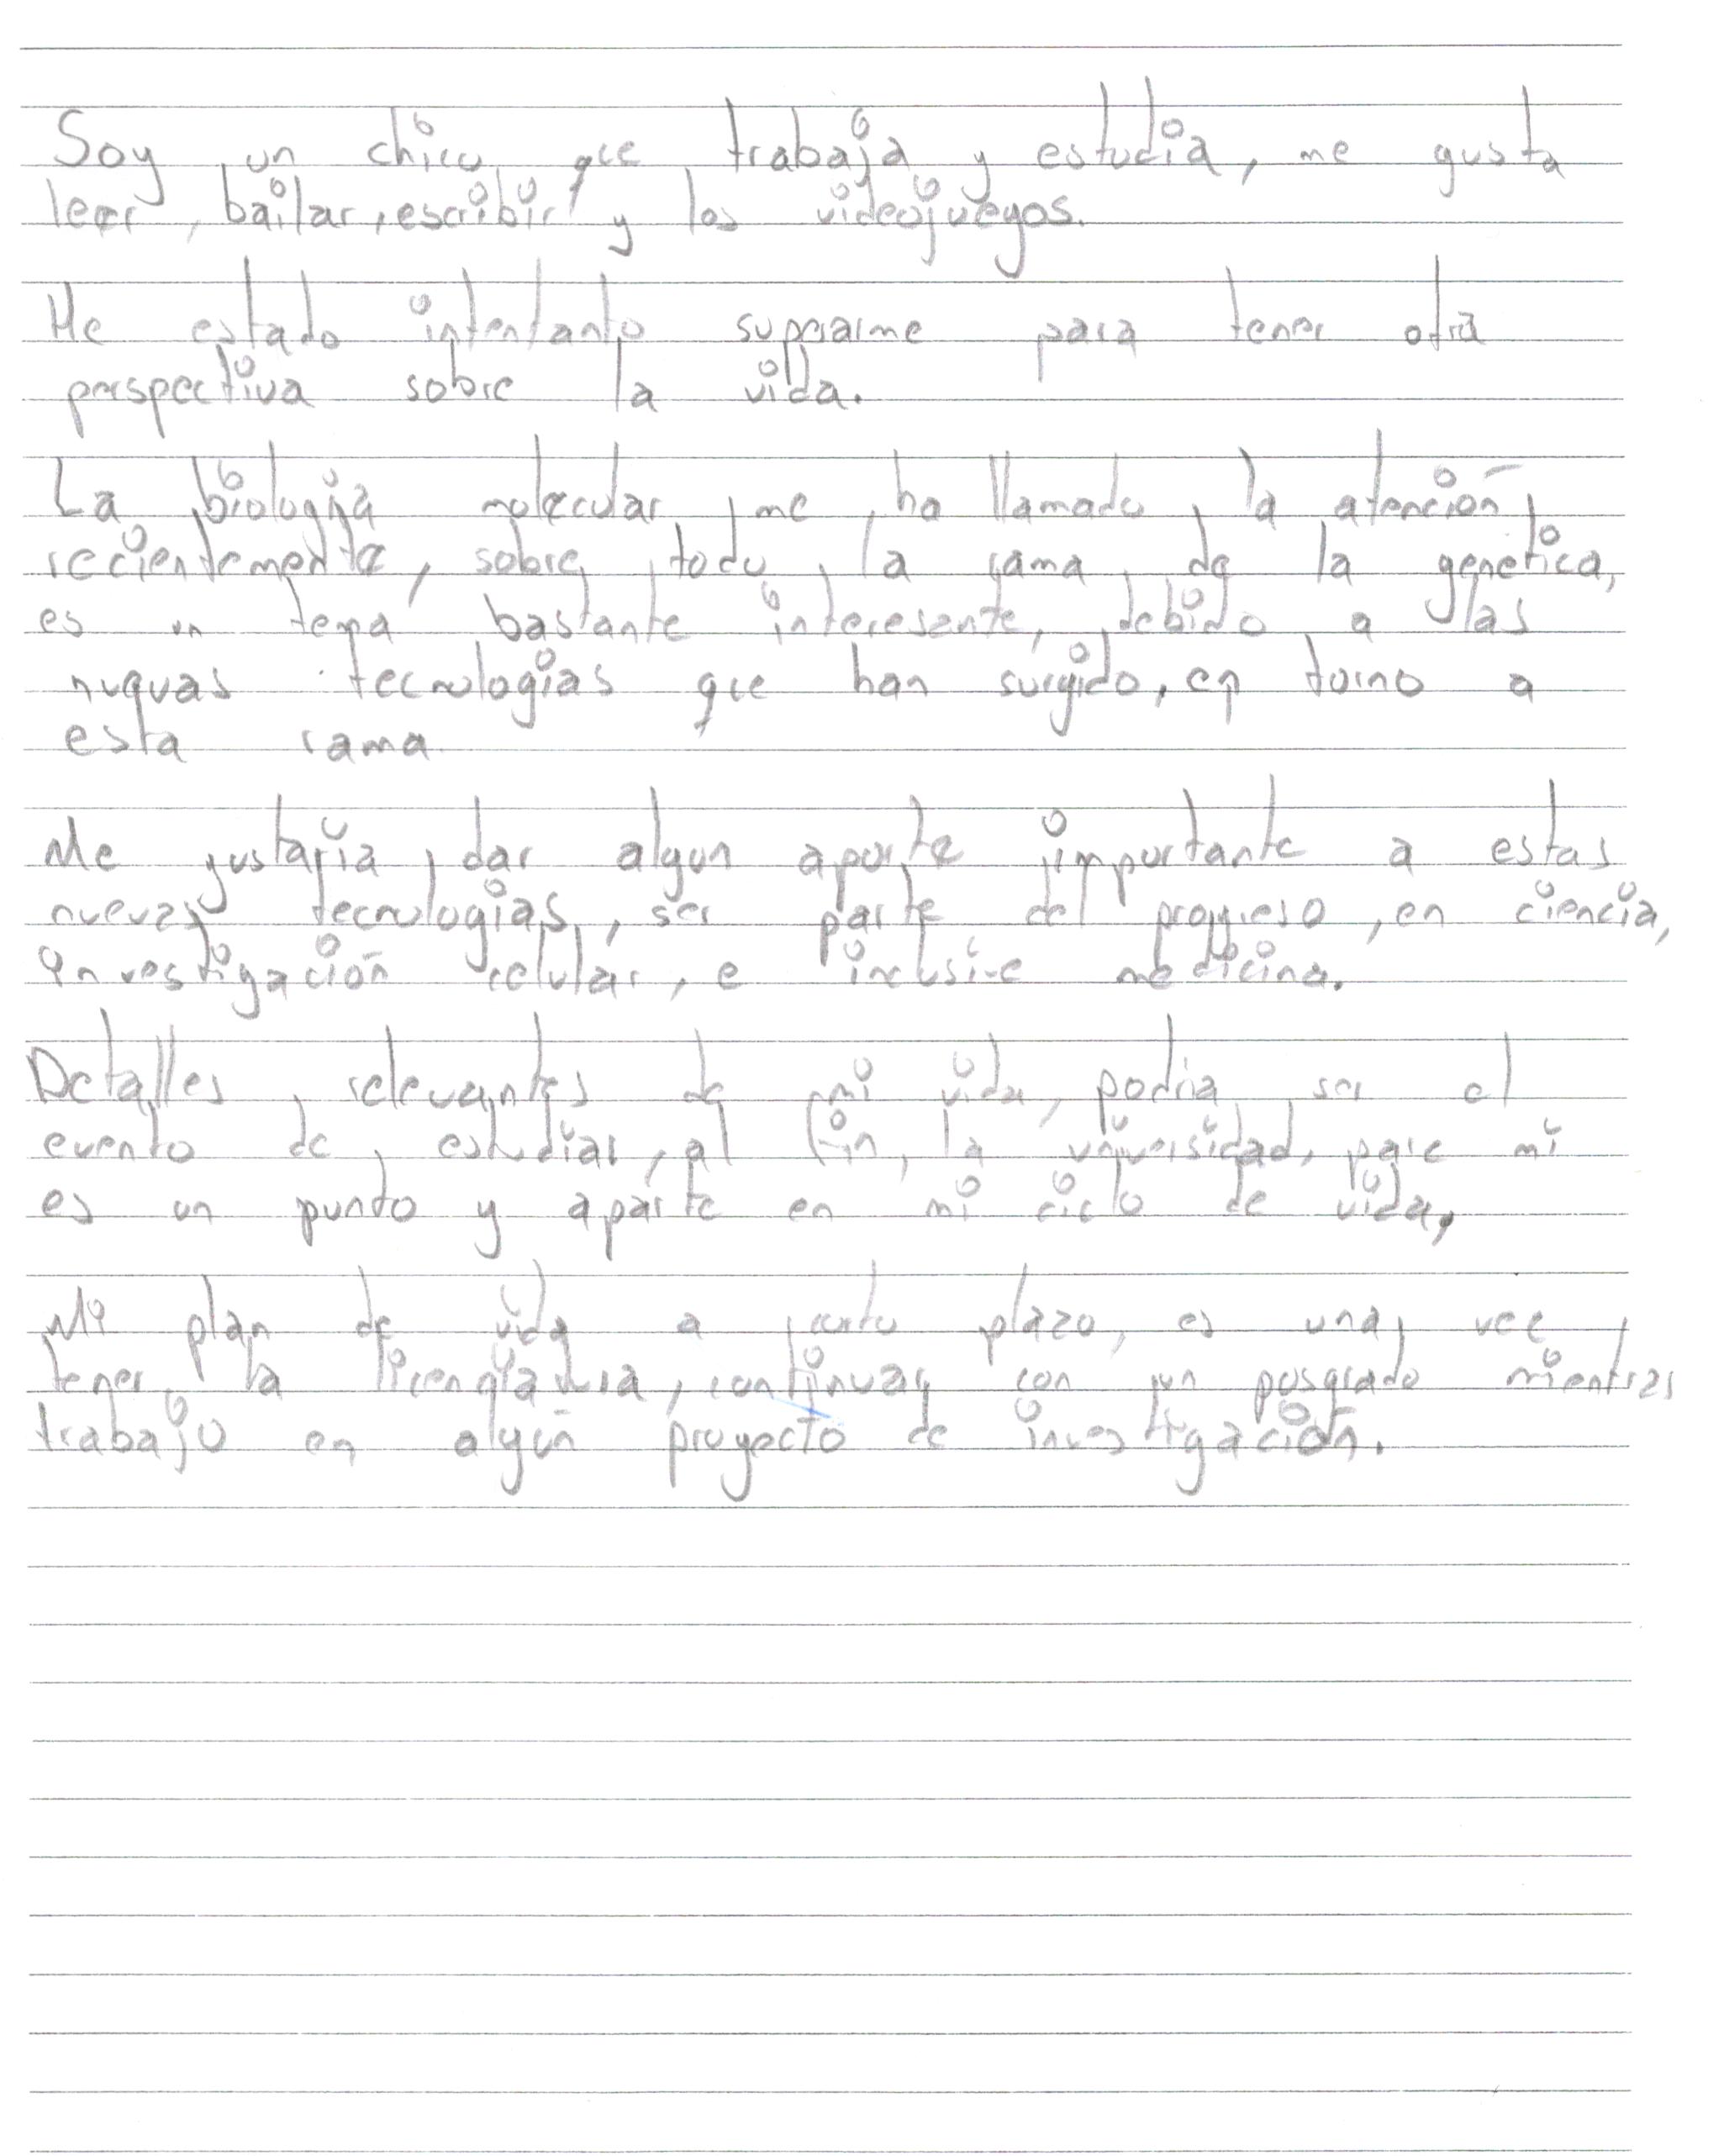 Soy un chico que trabaja y estudia, me gusta
leer, bailar, escribir y los videojuegos.
He estado intentanto superarme para tener otra
perspectiva sobre la vida.
La biología molecular me ha llamado la atención
recientemente, sobre todo la rama de la genetica,
es un tema bastante interesante, debido a las
nuevas tecnologías que han surgido, en torno a
esta rama.
Me gustaria dar algun aporte importante a estas
nuevas tecnologías, ser parte del progreso, en ciencia,
investigación celular, e inclusive medicina.
Detalles relevantes de mi vida, podria ser el
evento de estudiar, al fin, la universidad, para mi
es un punto y aparte en mi ciclo de vida,
Mi plan de vida a corto plazo, es una vez
tener la licenciatura, continuar con un posgrado mientras
trabajo en algún proyecto de investigación.